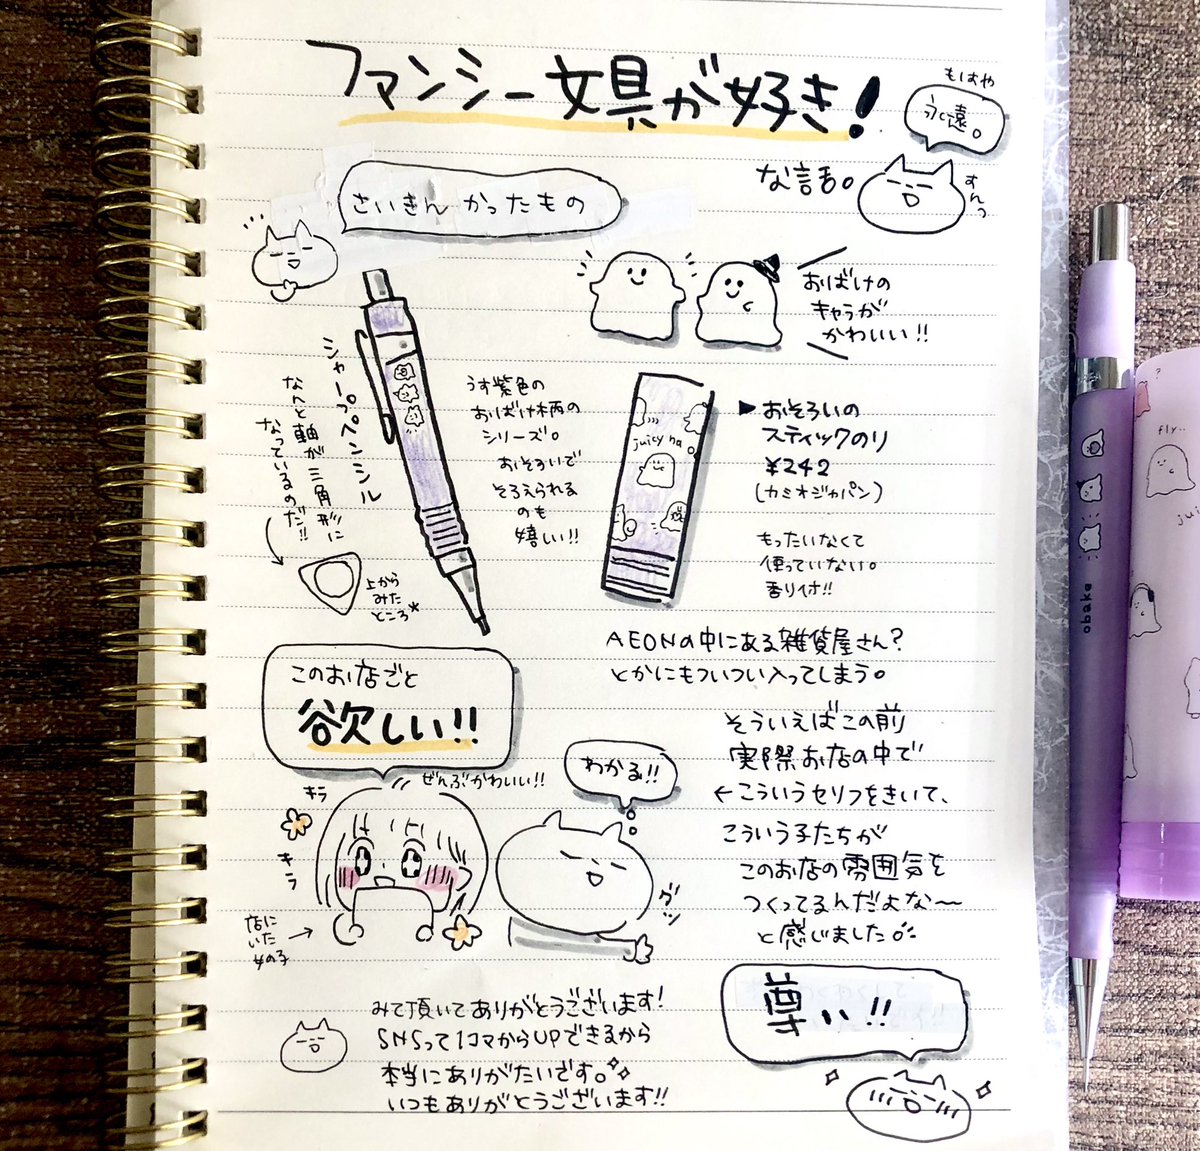 ファンシー文具が好き!
もはや
永遠。
な話。
すんっ
さいきん かったもの
おばけの
キャラが
かわいい!!
シャープペンシル
なんと軸が三角形に
なっているのだ!!
上から
みた
ところ*
うす紫色の
おばけ柄の
シリーズ。
おそろいで
そろえられる
のも
嬉しい!!
juicy na
▶おそろいの
スティックのり
¥242
(カミオジャパン)
もったいなくて
使っていない。
香り付!!
AEONの中にある雑貨屋さん?
とかにもついつい入ってしまう。
このお店ごと
欲しい!!
ぜんぶかわいい!!
キラ
キラ
店に
いた
女の子
わかる!!
グッ
そういえばこの前
実際お店の中で
←こういうセリフをきいて、
こういう子たちが
このお店の雰囲気を
つくってるんだよな〜
と感じました。
尊い!!
みて頂いてありがとうございます!
SNSって1コマからUPできるから
本当にありがたいです。
いつもありがとうございます!!
obake
fly..
juic